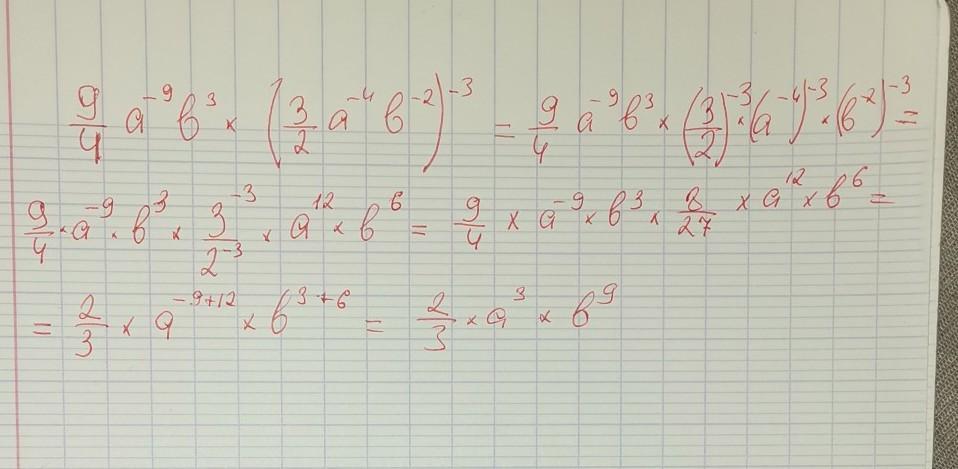 9/4 a⁻⁹ b³ × (3/2 a⁻⁴ b⁻²)⁻³ = 9/4 a⁻⁹ b³ × (3/2)⁻³ × (a⁻⁴)⁻³ × (b⁻²)⁻³ =
9/4 × a⁻⁹ × b³ × 3⁻³/2⁻³ × a¹² × b⁶ = 9/4 × a⁻⁹ × b³ × 8/27 × a¹² × b⁶ =
= 2/3 × a⁻⁹⁺¹² × b³⁺⁶ = 2/3 × a³ × b⁹